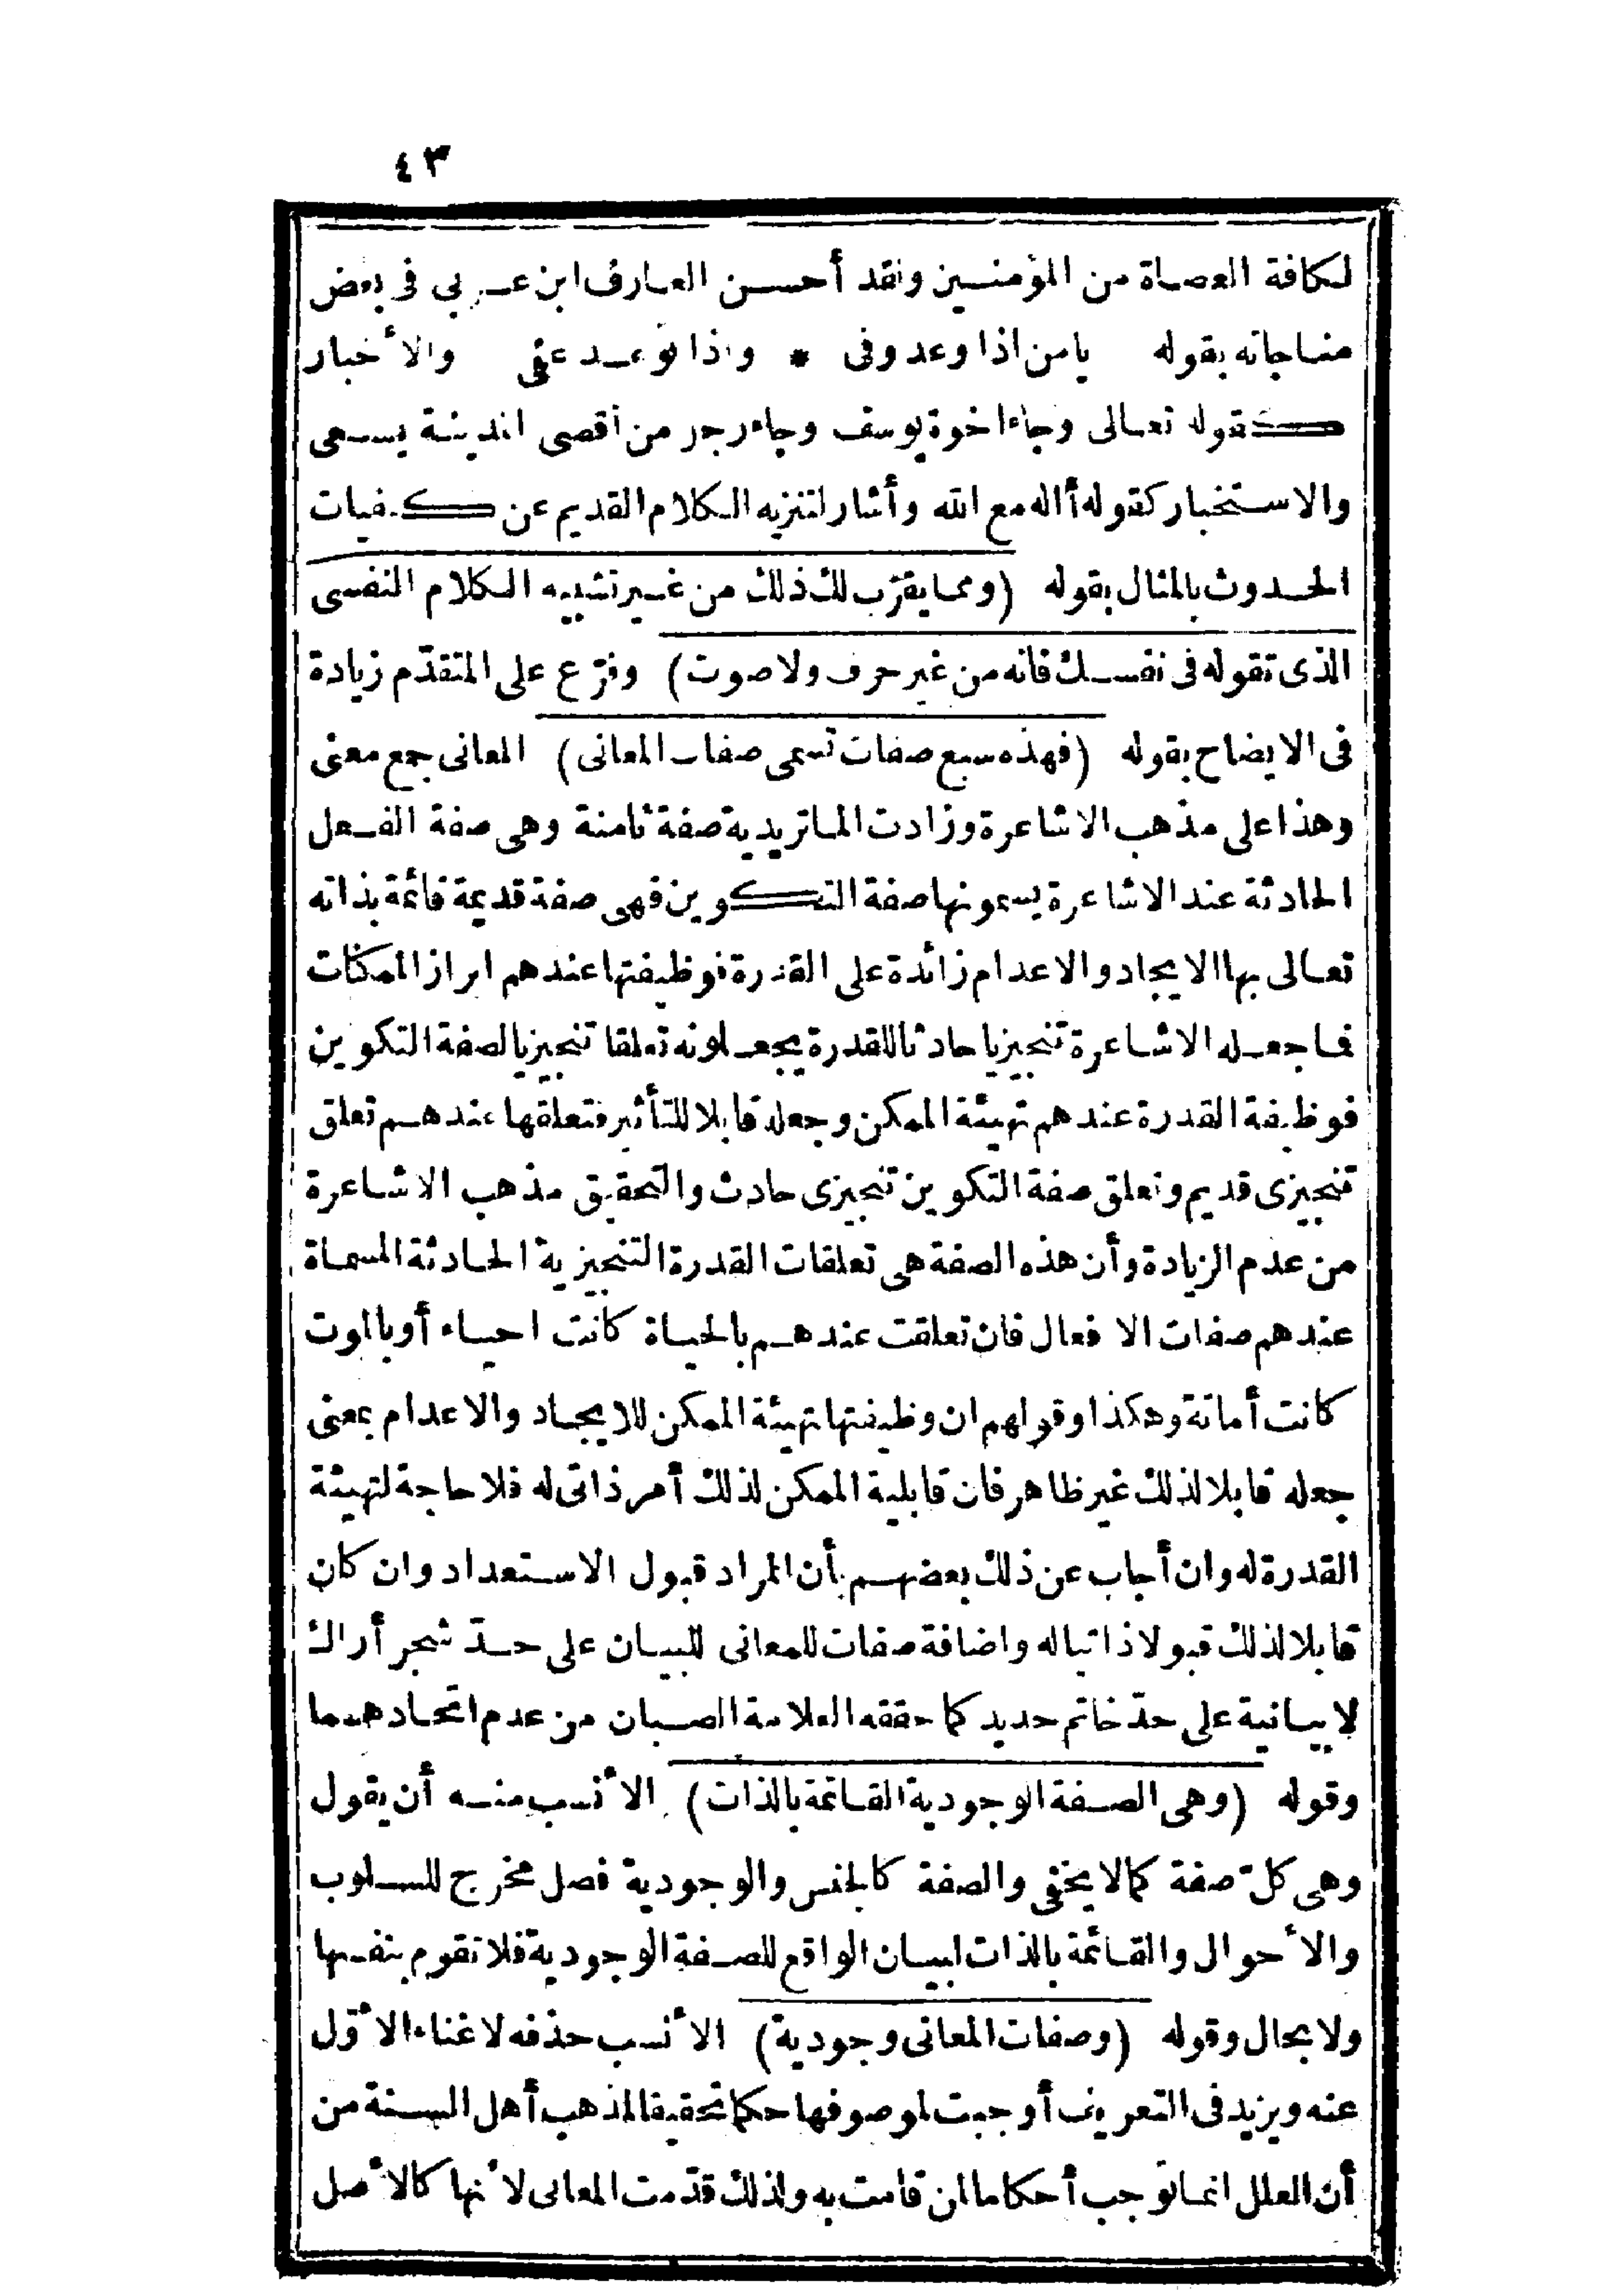 ٤٣
لكافة العصاة من المؤمنين ولقد أحسن العارف ابن عربى فى بعض
مناجاته بقوله يامن اذا وعد وفى * واذا توعد عفى والأخبار
كقوله تعالى وجاء اخوة يوسف وجاء رجل من أقصى المدينة يسعى
والاستخبار كقوله أاله مع الله وأشار لتنزيه الكلام القديم عن كيفيات
الحدوث بالمثال بقوله (ومما يقرّب لك ذلك من غير تشبيه الكلام النفسى
الذى تقوله فى نفسك فانه من غير حرف ولا صوت) وفرّع على المتقدّم زيادة
فى الايضاح بقوله (فهذه سبع صفات تسمى صفات المعانى) المعانى جمع معنى
وهذا على مذهب الاشاعرة وزادت الماتريدية صفة ثامنة وهى صفة الفعل
الحادثة عند الاشاعرة يسمونها صفة التكوين فهى صفة قديمة قائمة بذاته
تعالى بها الايجاد والاعدام زائدة على القدرة فوظيفتها عندهم ابراز الممكنات
فما جعله الاشاعرة تنجيزيا حادثا للقدرة يجعلونه تعلقا تنجيزيا لصفة التكوين
فوظيفة القدرة عندهم تهيئة الممكن وجعله قابلا للتأثير فتعلقها عندهم تعلق
تنجيزى قديم وتعلق صفة التكوين تنجيزى حادث والتحقيق مذهب الاشاعرة
من عدم الزيادة وأن هذه الصفة هى تعلقات القدرة التنجيزية الحادثة المسماة
عندهم صفات الافعال فان تعلقت عندهم بالحياة كانت احياء أو بالموت
كانت أماتة وهكذا وقولهم ان وظيفتها تهيئة الممكن للايجاد والاعدام بمعنى
جعله قابلا لذلك غير ظاهر فان قابلية الممكن لذلك أمر ذاتى له فلا حاجة لتهيئة
القدرة له وان أجاب عن ذلك بعضهم بأن المراد قبول الاستعداد وان كان
قابلا لذلك قبولا ذاتيا له واضافة صفات للمعانى للبيان على حدّ شجر أراك
لا بيانية على حدّ خاتم حديد كما حققه العلامة الصبان من عدم اتحادهما
وقوله (وهى الصفة الوجودية القائمة بالذات) الأنسب منه أن يقول
وهى كلّ صفة كما لا يخفى والصفة كالجنس والوجودية فصل مخرج للسلوب
والأحوال والقائمة بالذات لبيان الواقع للصفة الوجودية فلا تقوم بنفسها
ولا بحال وقوله (وصفات المعانى وجودية) الأنسب حذفه لاغناء الأوّل
عنه ويزيد فى التعريف أوجبت لموصوفها حكما تحقيقا لمذهب أهل السنة من
أن العلل انما توجب أحكاما لمن قامت به ولذلك قدّمت المعانى لأنها كالأصل